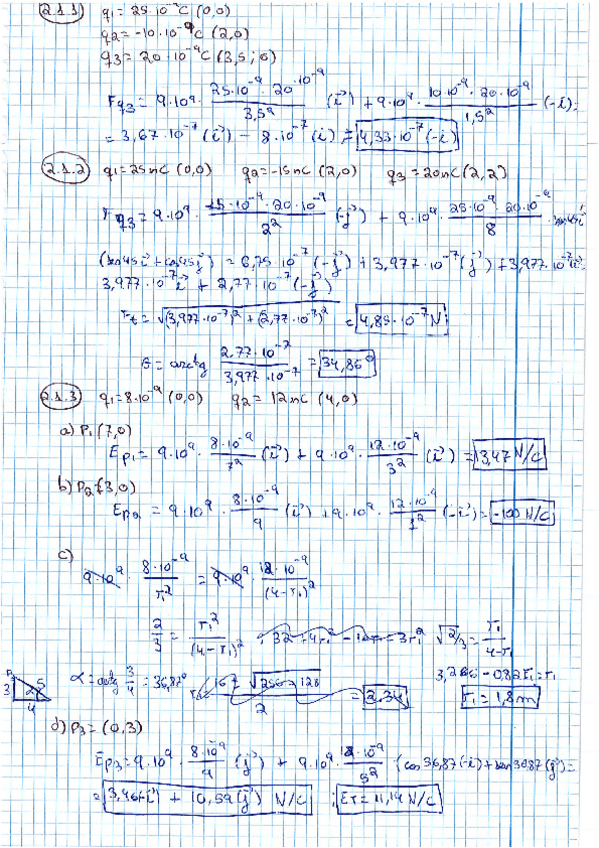 2.1.1) q1 = 25·10⁻⁹C (0,0)
q2 = -10·10⁻⁹C (2,0)
q3 = 20·10⁻⁹C (3,5; 0)
Fq3 = 9·10⁹ · 25·10⁻⁹ · 20·10⁻⁹ / 3,5² (i⃗) + 9·10⁹ · 10·10⁻⁹ · 20·10⁻⁹ / 1,5² (-i) =
= 3,67·10⁻⁷ (i⃗) - 8·10⁻⁷ (i) = 4,33·10⁻⁷ (-i)
2.1.2) q1 = 25nC (0,0) q2 = -15nC (2,0) q3 = 20nC (2,2)
Fq3 = 9·10⁹ · 15·10⁻⁹ · 20·10⁻⁹ / 2² (-j⃗) + 9·10⁹ · 25·10⁻⁹ · 20·10⁻⁹ / 8
(sen45 i⃗ + cos45 j⃗) = 6,75·10⁻⁷ (-j⃗) + 3,977·10⁻⁷ (j⃗) + 3,977·10⁻⁷ i⃗ =
3,977·10⁻⁷ i⃗ + 2,77·10⁻⁷ (-j⃗)
Ft = √(3,977·10⁻⁷)² + (2,77·10⁻⁷)² = 4,85·10⁻⁷ N
θ = arctg 2,77·10⁻⁷ / 3,977·10⁻⁷ = 34,86°
2.1.3) q1 = 8·10⁻⁹ (0,0) q2 = 12nC (4,0)
a) P1 (7,0)
Ep1 = 9·10⁹ · 8·10⁻⁹ / 7² (i⃗) + 9·10⁹ · 12·10⁻⁹ / 3² (i⃗) = 13,47 N/C
b) P2 = (3,0)
Ep2 = 9·10⁹ · 8·10⁻⁹ / 9 (i⃗) + 9·10⁹ · 12·10⁻⁹ / 1² (-i⃗) = -100 N/C
c)
9·10⁹ · 8·10⁻⁹ / r1² = 9·10⁹ · 12·10⁻⁹ / (4-r1)²
2/3 = r1² / (4-r1)² √2/3 = r1 / 4-r1
3,266 - 0,82r1 = r1
α = arctg 3/4 = 36,87° = 2,34 r1 = 1,8m
3 α 5
4
d) P3 = (0,3)
Ep3 = 9·10⁹ · 8·10⁻⁹ / 9 (j⃗) + 9·10⁹ · 12·10⁻⁹ / 5² (cos36,87(-i) + sen36,87(j⃗) =
= 3,46(-i⃗) + 10,59(j⃗) N/C ; ET = 11,14 N/C